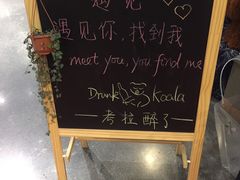 遇见
遇见你,找到我
meet you, you find me
Drunk Koala
考拉醉了